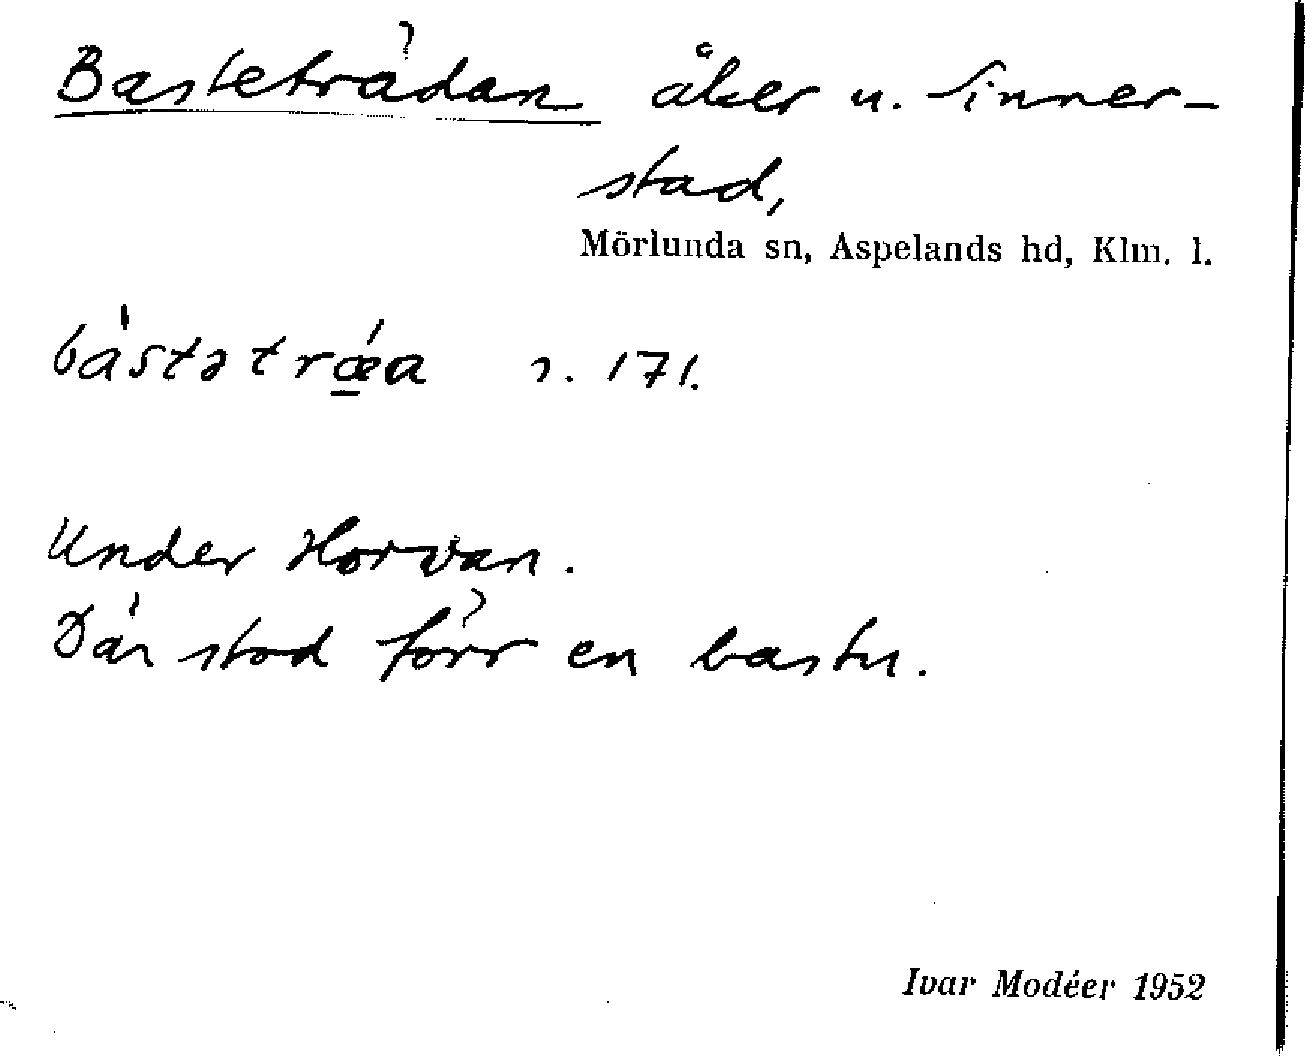 Basteträdan åker u. Sinner-
stad,
Mörlunda sn, Aspelands hd, Klm. l.
bástətrǽa s. 171.
Under Horvan.
Där stod förr en bastu.
Ivar Modéer 1952